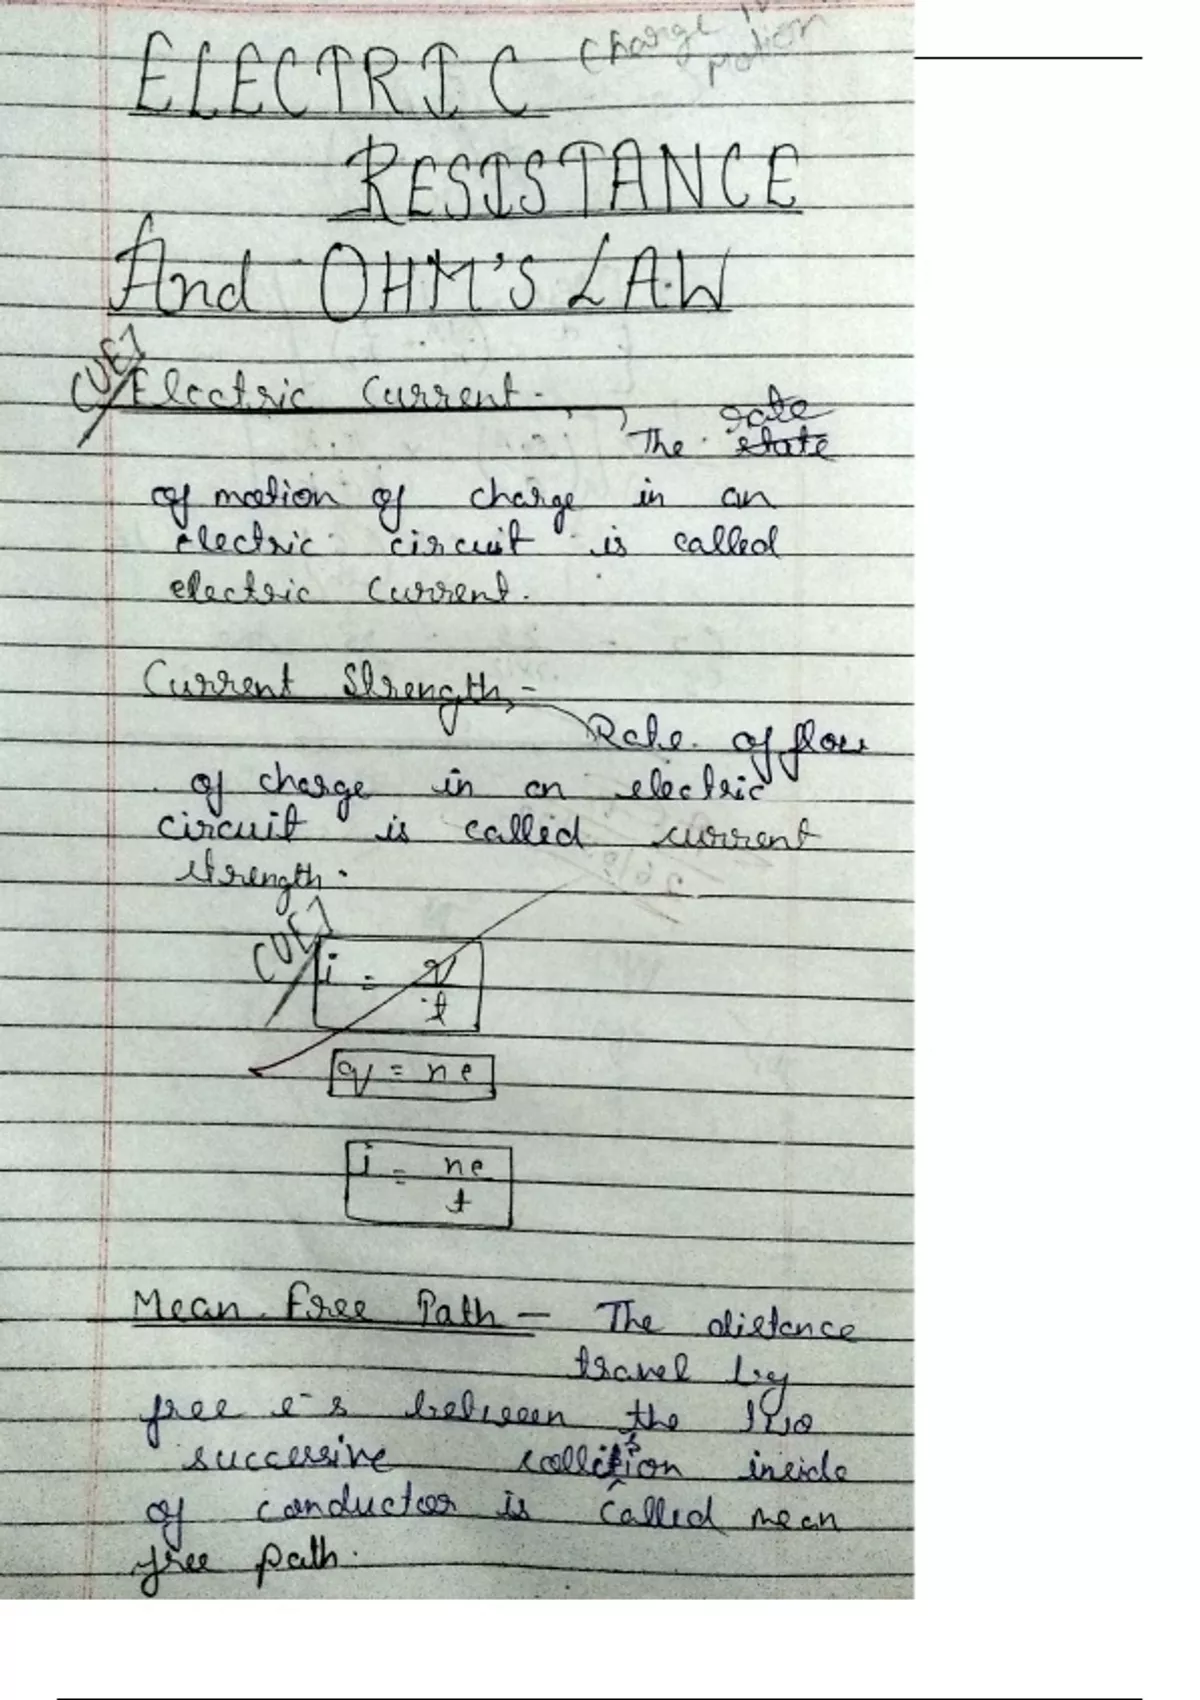 Charge in
motion
ELECTRIC
RESISTANCE
And OHM'S LAW
Electric Current -
The state rate
of motion of charge in an
electric circuit is called
electric current.
Current Strength -
Rate of flow
of charge in an electric
circuit is called current
strength.
i = q/t
q = ne
i = ne/t
Mean free Path - The distance
travel by
free e⁻s between the two
successive collision inside
of conductor is called mean
free path.